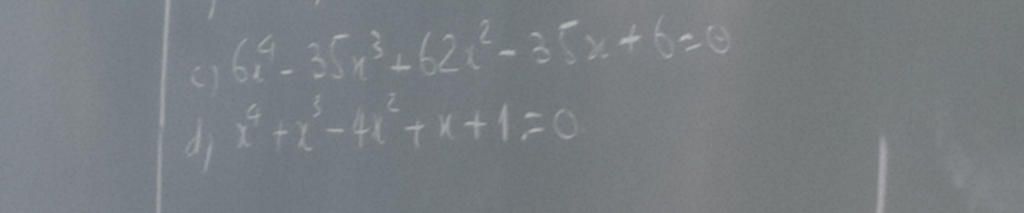 c) 6x⁴ - 35x³ + 62x² - 35x + 6 = 0
d) x⁴ + x³ - 4x² + x + 1 = 0